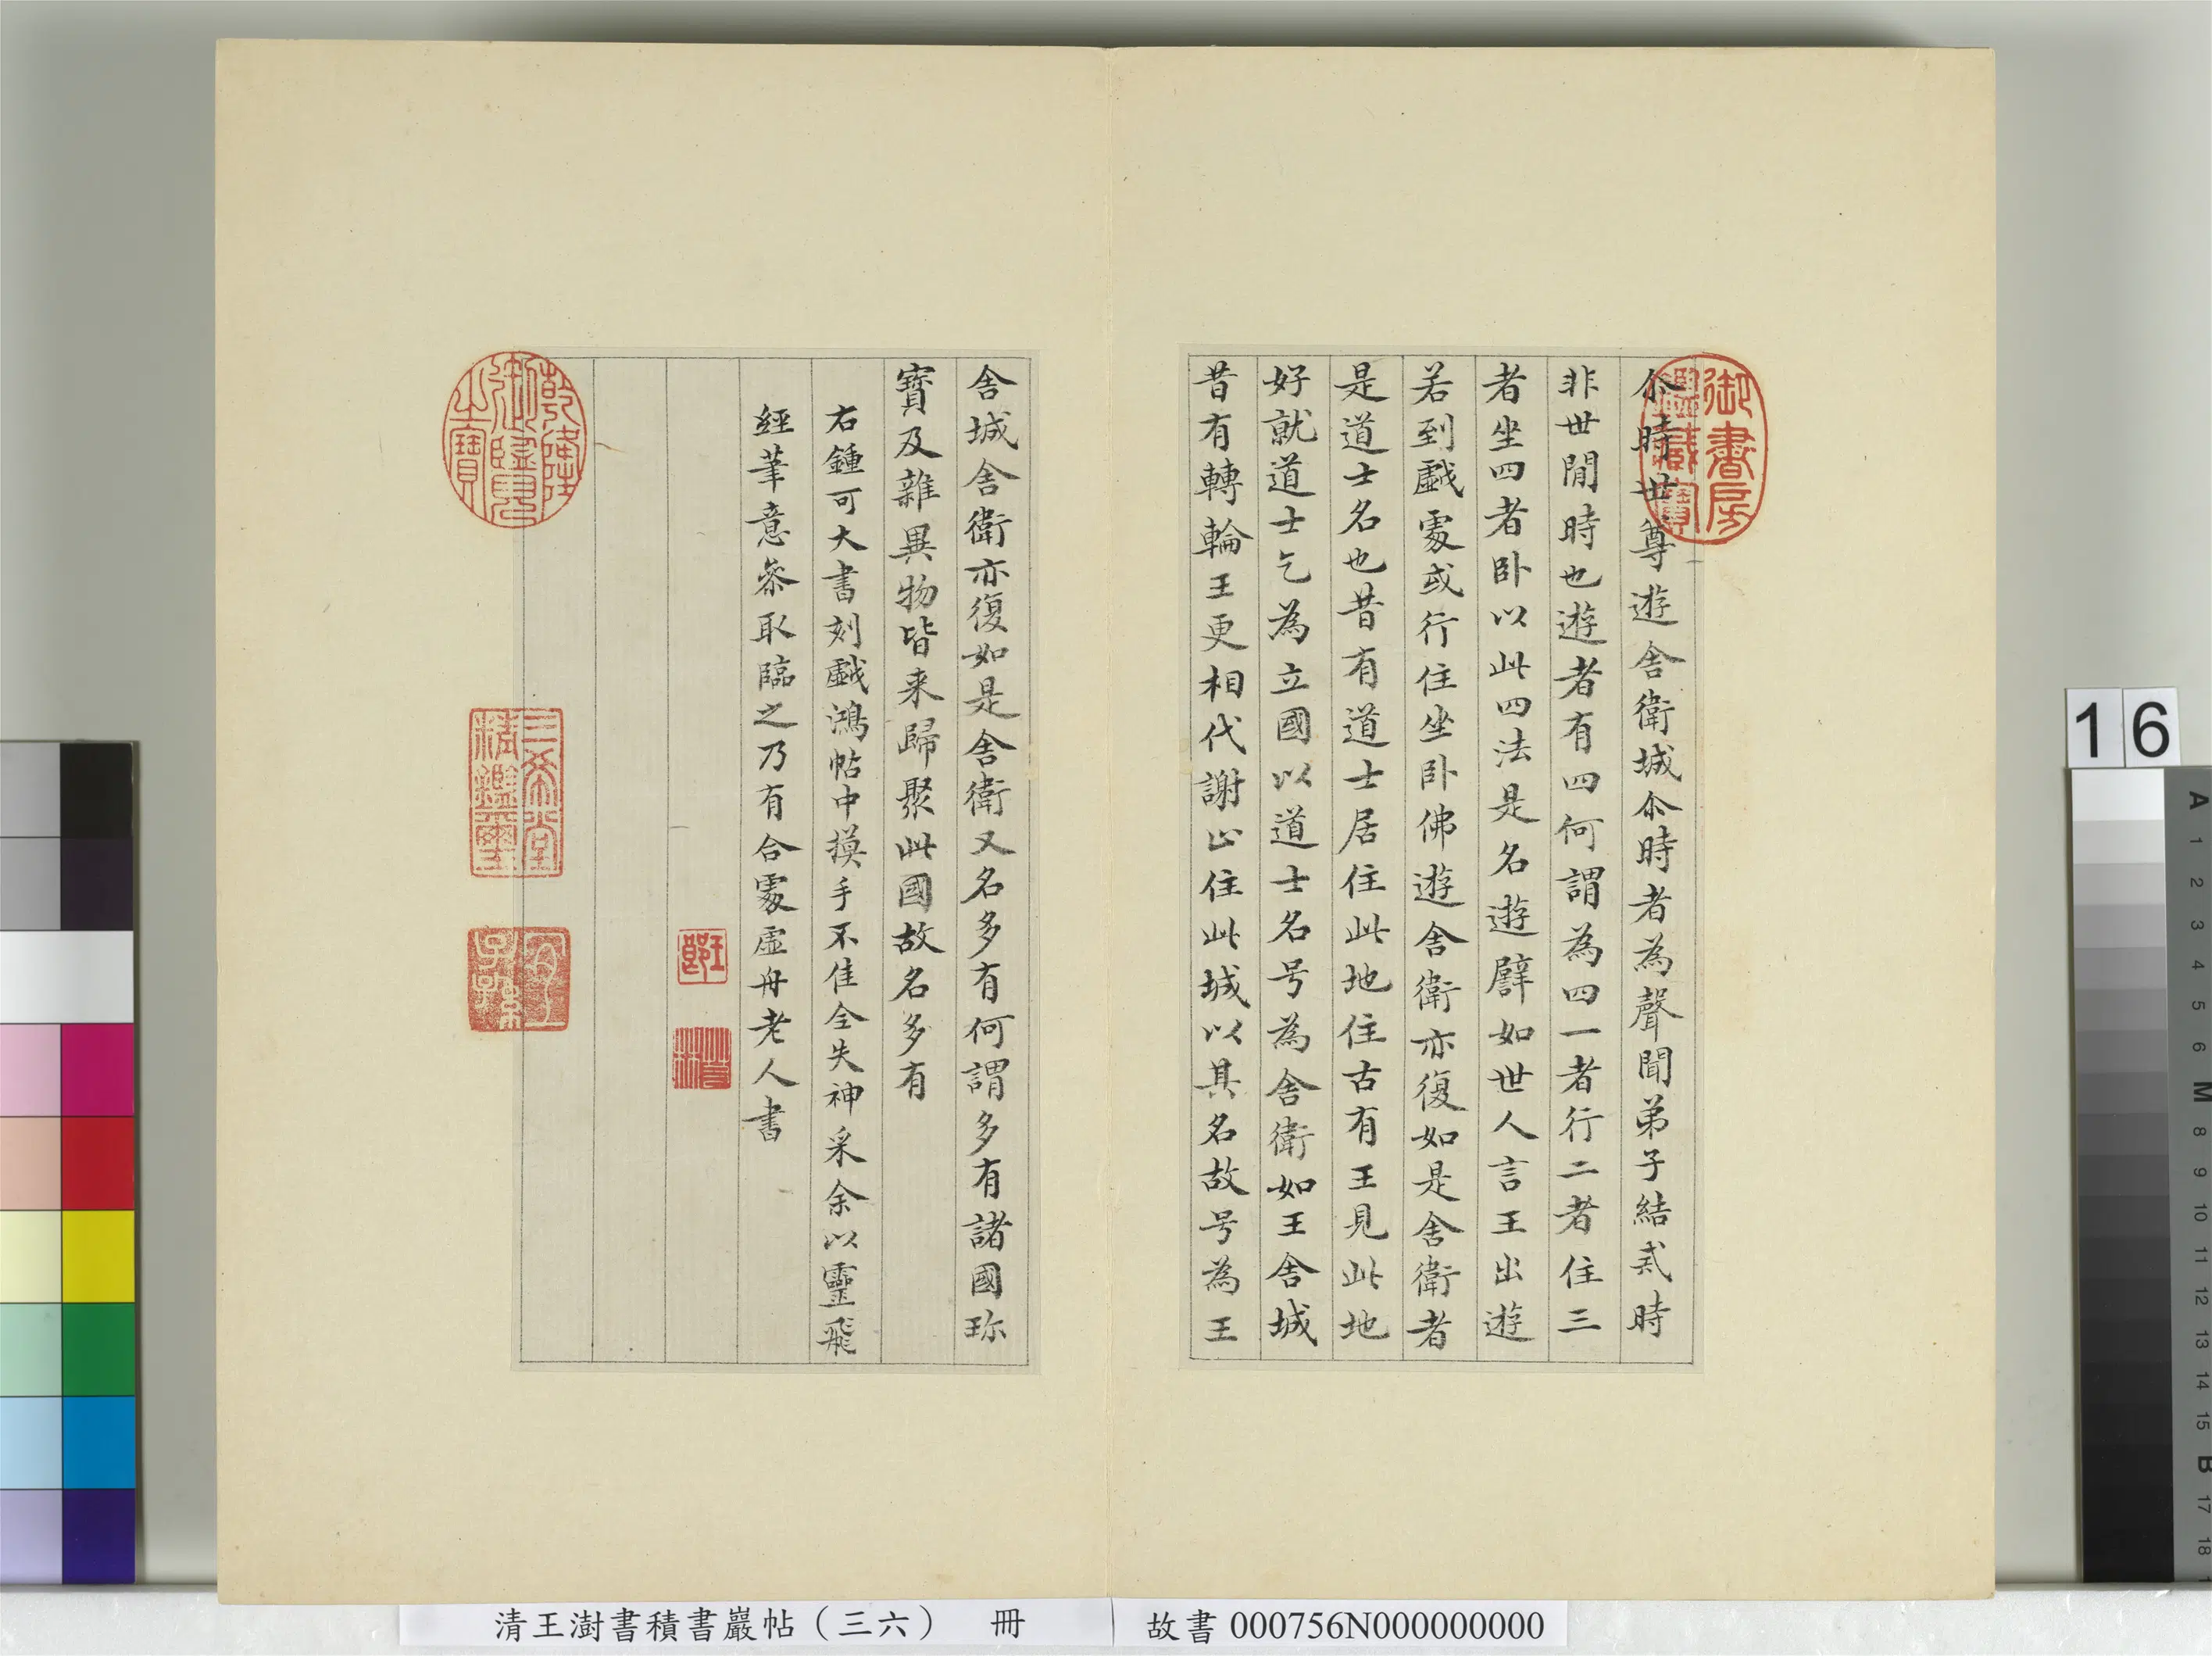 尒時世尊遊舍衛城尒時者為聲聞弟子結戒時
非世間時也遊者有四何謂為四一者行二者住三
者坐四者臥以此四法是名遊譬如世人言王出遊
若到戲處或行住坐臥佛遊舍衛亦復如是舍衛者
是道士名也昔有道士居住此地住古有王見此地
好就道士乞為立國以道士名号為舍衛如王舍城
昔有轉輪王更相代謝止住此城以其名故号為王
舍城舍衛亦復如是舍衛又名多有何謂多有諸國珎
寶及雜異物皆来歸聚此國故名多有
右鍾可大書刻戲鴻帖中摸手不佳全失神采余以靈飛
經筆意叅取臨之乃有合處虛舟老人書
御書房鑑藏寶
乾隆御覽之寶
三希堂精鑑璽
宜子孫
16
清王澍書積書巖帖(三六) 冊
故書 000756N000000000
A 1 2 3 4 5 6 M 8 9 10 11 12 13 14 15 B 17 18